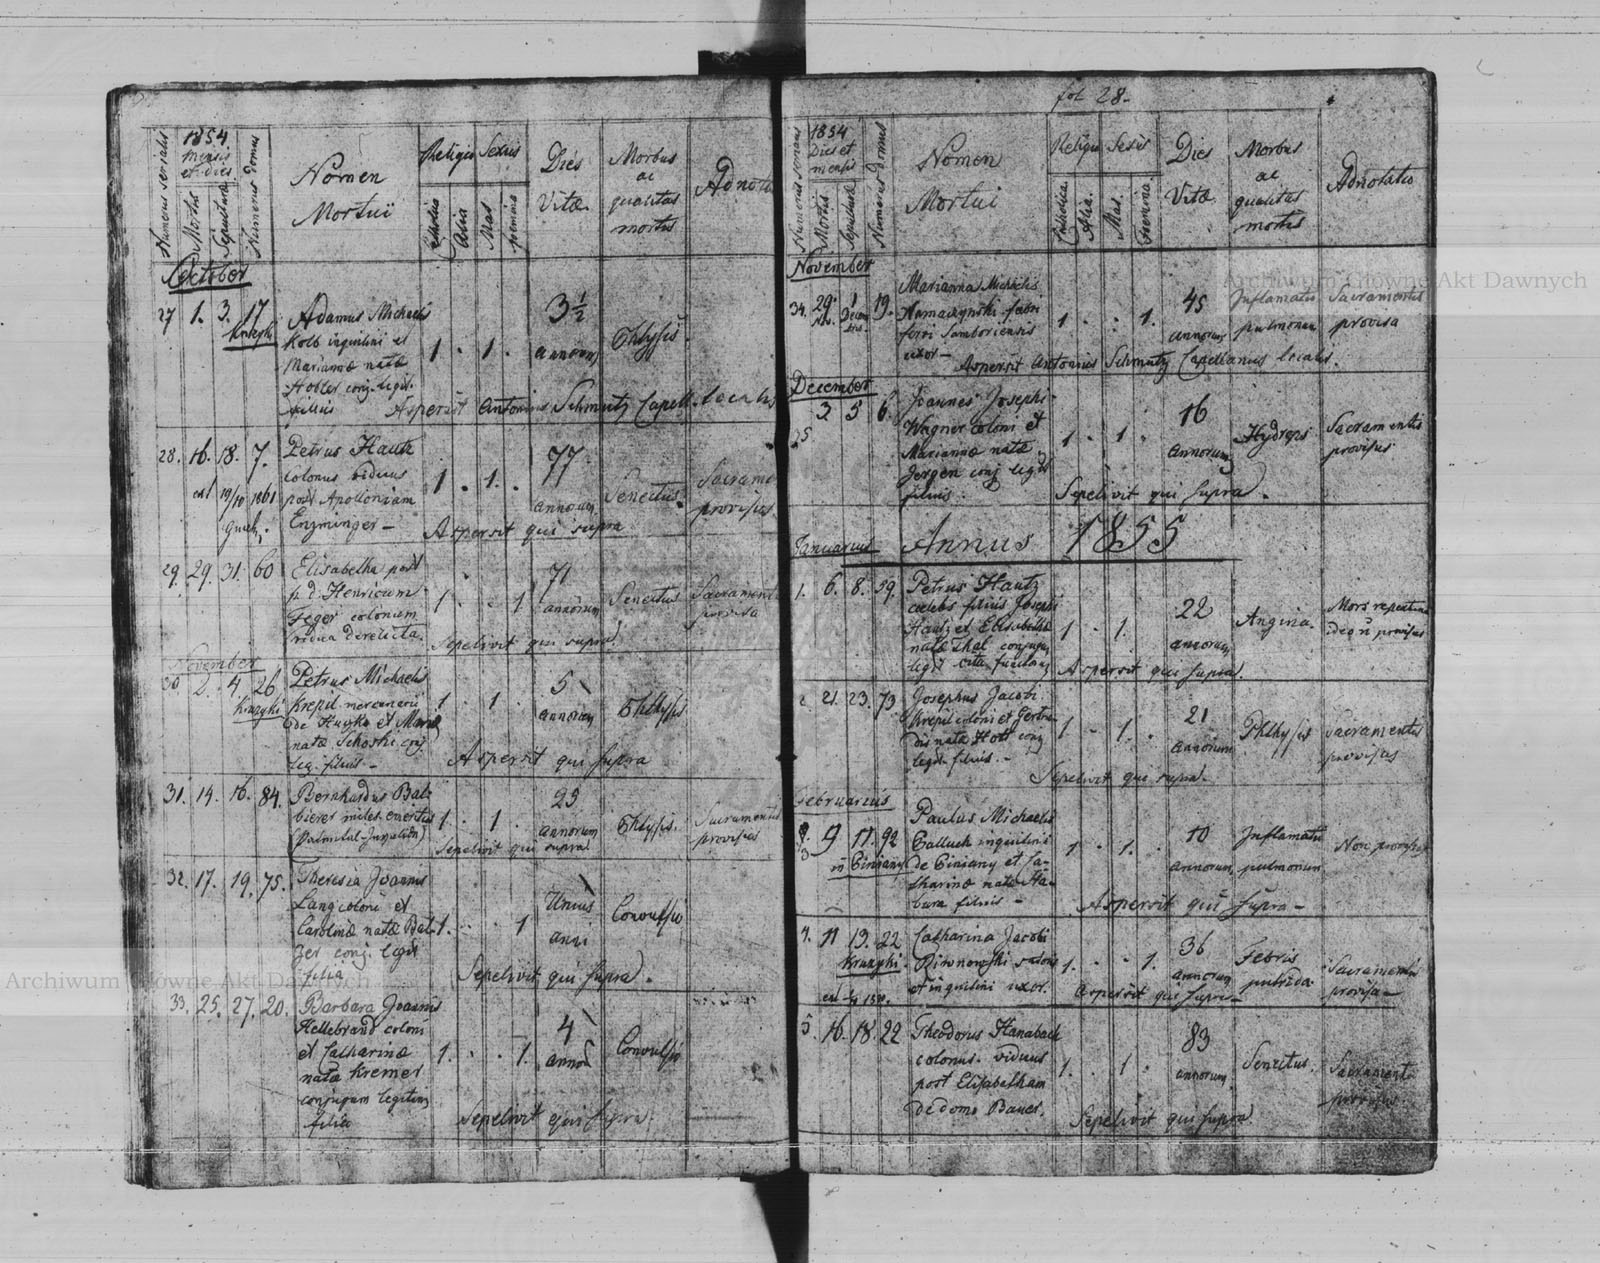 Numerus serialis
1854
Mensis
et dies
Mortis
Sepulturæ
Numerus domus
Nomen
Mortui
Religio
Catholica
Alia
Sexus
Mas
femina
Dies
Vitæ
Morbus
ac
qualitas
mortis
Adnota
October
27 1. 3. 17
Adamus Michaelis
Kolb inquilini et
Mariannæ natæ
Hobler conj. legit.
filius
1 . 1.
3 1/2
annorum
Phtysis
Aspersit Antonius Schmutz Capell. localis
28. 16. 18. 7.
Petrus Hautz
colonus viduus
post Apolloniam
Enzminger —
ext 19/10 1861
1 . 1. .
77
annorum
Senectus.
Sacrame
provisus.
Aspersit qui supra
29. 29. 31. 60
Elisabetha post
p. d. Henricum
Feger colonum
vidua derelicta.
1 . . 1.
71
annorum
Senectus
Sacrament
provisa
Sepelivit qui supra
November
30 2. 4. 26
Petrus Michaelis
Krepil mercenarii
natæ Schoski conj.
leg. filius —
1 . 1 .
5
annorum
Phthysis
Aspersit qui supra
31. 14. 16. 84.
Bernhardus Bal-
bierer miles emeritus
1. . 1 .
25
annorum
Phtysis.
Sacramentis
provisus
Sepelivit qui supra
32. 17. 19. 75.
Theresia Joannis
Lang coloni et
Carolinæ natæ Bal-
zer conj. legit
filia
1. . . 1
Unius
anni
Convulsio
Sepelivit qui supra.
33. 25. 27. 20.
Barbara Joannis
Hellebrand coloni
et Catharinæ
natæ Kremer
conjugum legitim
filia
1. . . 1.
4
annor
Convulsio
Sepelivit qui supra.
fol 28.
Numerus serialis
1854
Dies et
mensis
Mortis
Sepulturæ
Numerus domus
Nomen
Mortui
Religio
Catholica
Alia.
Sexus
Mas.
Foemina
Dies
Vitæ
Morbus
ac
qualitas
mortis
Adnotatio
November
34. 29. 1 19.
Marianna Michaelis
fori Samboriensis
uxor —
1 . . 1.
45
annorum
Inflamatio
pulmonum
Sacramentis
provisa
Aspersit Antonius Schmutz Capellanus localis.
December
35 3 5 6.
Joannes Josephi
Wagner coloni et
Mariannæ natæ
Jergen conj legit
filius.
1 . 1 .
16
annorum
Hydrops
Sacramentis
provisus
Sepelivit qui supra.
Januarius Annus 1855
1. 6. 8. 59.
Petrus Hautz
cælebs filius Josephi
Hautz et Elisabethæ
natæ Thal conjugum
1 . 1.
22
annorum
Angina.
Mors repentina
ideo n̄ provisus
Aspersit qui supra.
2. 21. 23. 73.
Josephus Jacobi
Krepil coloni et Gertru-
dis natæ Hott conj
legit. filius. —
1 . 1.
21
annorum
Phthysis
Sacramentis
provisus
Sepelivit qui supra.
Februarius
3 9 11. 92
in Biniany
Paulus Michaelis
Galluch inquilini
de Biniany et Ca-
tharinæ natæ Ha-
bura filius —
1 . 1. .
10
annorum
Inflamatio
pulmonum
Non provisus
Aspersit qui supra —
4. 11 13. 22
Catharina Jacobi
et inquilini uxor.
1. . . 1.
36
annorum
Febris
putrida
Sacramentis
provisa —
Aspersit qui supra —
5. 16. 18. 22
Theodorus Hanabach
colonus viduus
post Elisabetham
de domo Bauer.
1. . 1 .
83
annorum
Senectus.
Sacrament
provisus
Sepelivit qui supra.
Archiwum Główne Akt Dawnych
Archiwum Główne Akt Dawnych